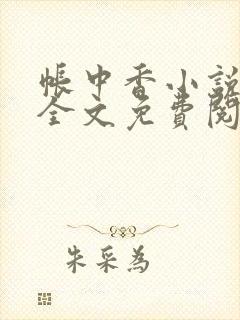 帳中香小說
全文免費閱
朱采為